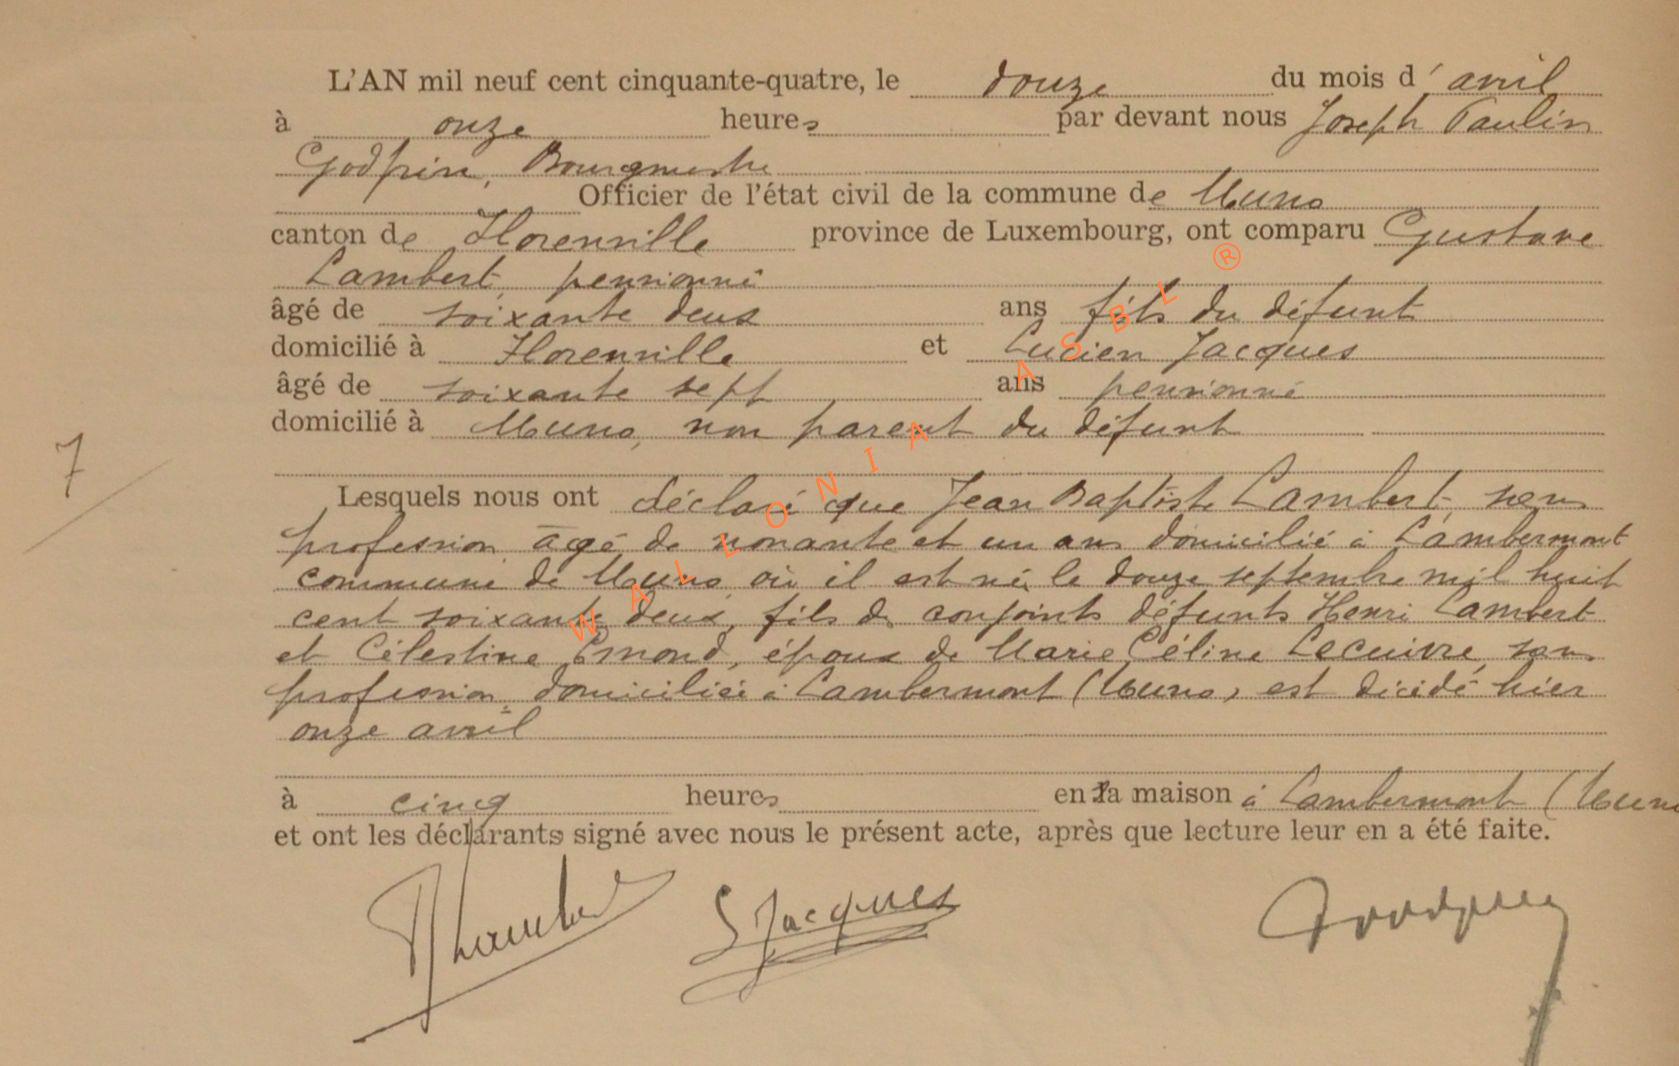 L'AN mil neuf cent cinquante-quatre, le douze du mois d'avril
à onze heures par devant nous Joseph Paulin
Godfrin, Bourgmestre
Officier de l'état civil de la commune de Muno
canton de Florenville province de Luxembourg, ont comparu Gustave
Lambert, pensionné
âgé de soixante deux ans fils du défunt
domicilié à Florenville et Lucien Jacques
âgé de soixante sept ans pensionné
domicilié à Muno, non parent du défunt
7
Lesquels nous ont déclaré que Jean Baptiste Lambert, sans
profession âgé de nonante et un ans domicilié à Lambermont
commune de Muno où il est né le douze septembre mil huit
cent soixante deux, fils de conjoints défunts Henri Lambert
et Célestine Emond, époux de Marie Céline Lecuivre, sans
profession, domiciliée à Lambermont (Muno) est décédé hier
onze avril
à cinq heures en sa maison à Lambermont (Muno
et ont les déclarants signé avec nous le présent acte, après que lecture leur en a été faite.
S Jacques
WALLONIA ASBL ®